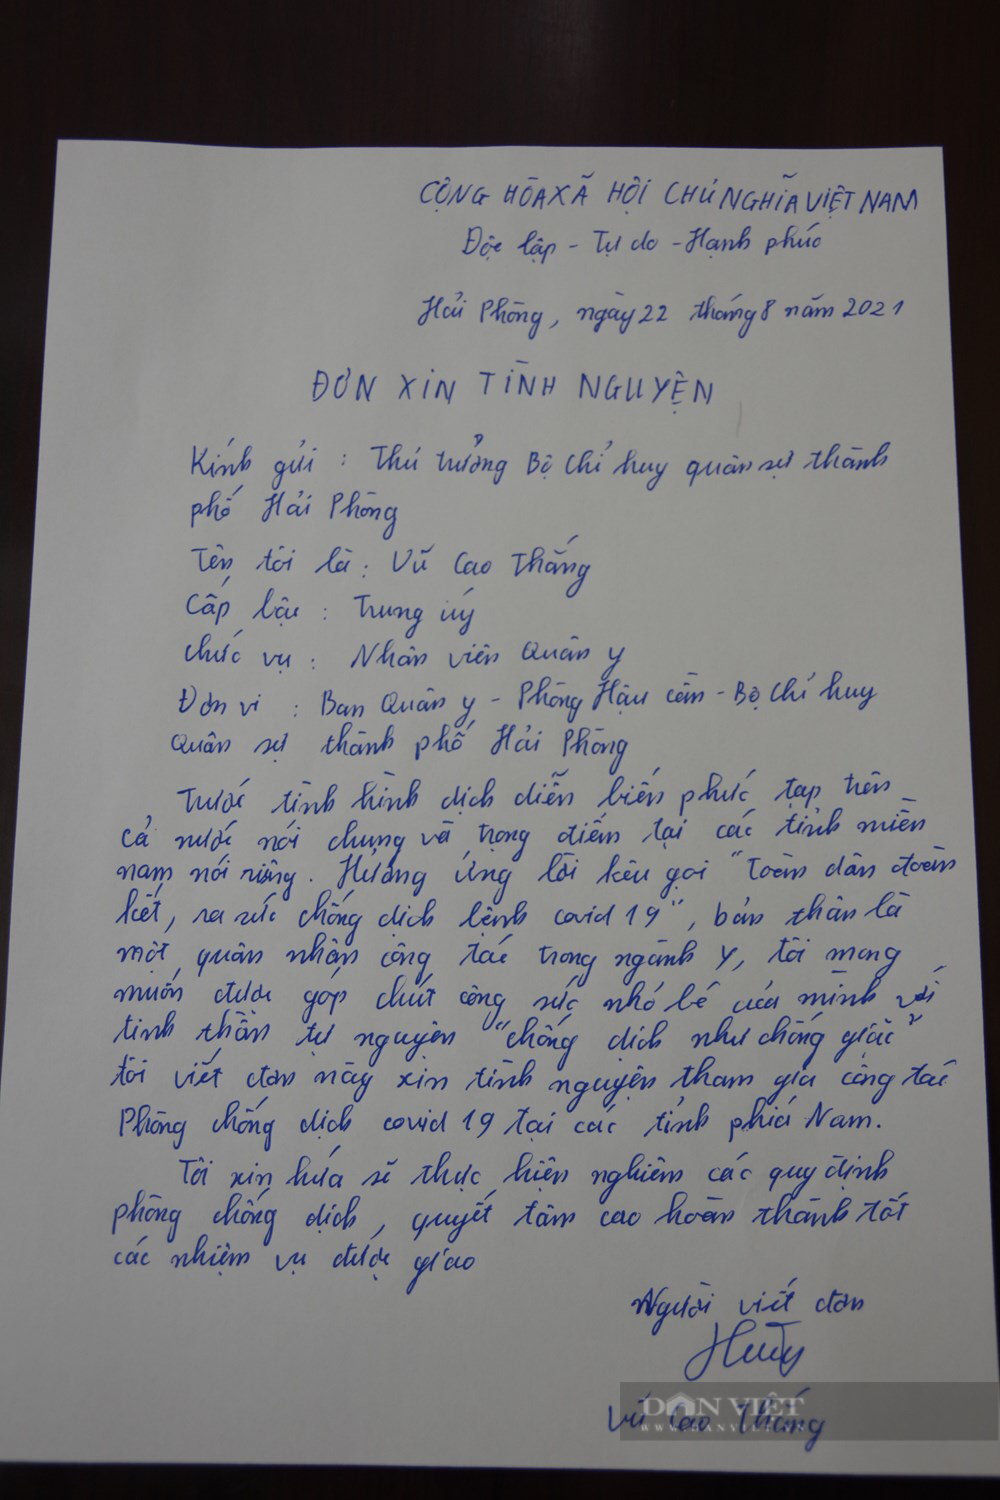 CỘNG HÒA XÃ HỘI CHỦ NGHĨA VIỆT NAM
Độc lập - Tự do - Hạnh phúc
Hải Phòng, ngày 22 tháng 8 năm 2021
ĐƠN XIN TÌNH NGUYỆN
Kính gửi : Thủ trưởng Bộ Chỉ huy quân sự thành
phố Hải Phòng
Tên tôi là : Vũ Cao Thắng
Cấp bậc : Trung úy
Chức vụ : Nhân viên Quân y
Đơn vị : Ban Quân y - Phòng Hậu cần - Bộ Chỉ huy
Quân sự thành phố Hải Phòng
Trước tình hình dịch diễn biến phức tạp trên
cả nước nói chung và trọng điểm tại các tỉnh miền
nam nói riêng. Hưởng ứng lời kêu gọi "Toàn dân đoàn
kết, ra sức chống dịch bệnh covid 19", bản thân là
một quân nhân công tác trong ngành Y, tôi mong
muốn được góp chút công sức nhỏ bé của mình với
tinh thần tự nguyện "chống dịch như chống giặc"
tôi viết đơn này xin tình nguyện tham gia công tác
Phòng chống dịch covid 19 tại các tỉnh phía Nam.
Tôi xin hứa sẽ thực hiện nghiêm các quy định
phòng chống dịch, quyết tâm cao hoàn thành tốt
các nhiệm vụ được giao
Người viết đơn
DÂN VIỆT
WWW.DANVIET.VN
Vũ Cao Thắng